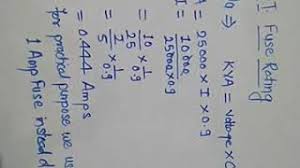 I. Fuse Rating
⇒ KVA = Voltage × C
A = 25000 × I × 0.9
I = 10000 / 25000×0.9
= 10/25 × 1/0.9
= 2/5 × 1/0.9
= 0.444 Amps
for practical purpose we us
1 Amp fuse instead o